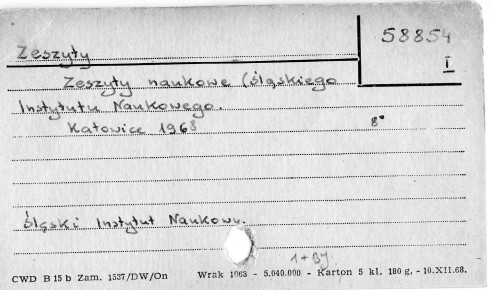 Zeszyty
58854
I
Zeszyty naukowe (śląskiego
Instytutu Naukowego.
Katowice 1968
8°
Śląski Instytut Naukowy.
1 + By.
CWD B 15 b Zam. 1537/DW/On Wrak 1063 - 5.040.000 - Karton 5 kl. 180 g. - 10.XII.68.